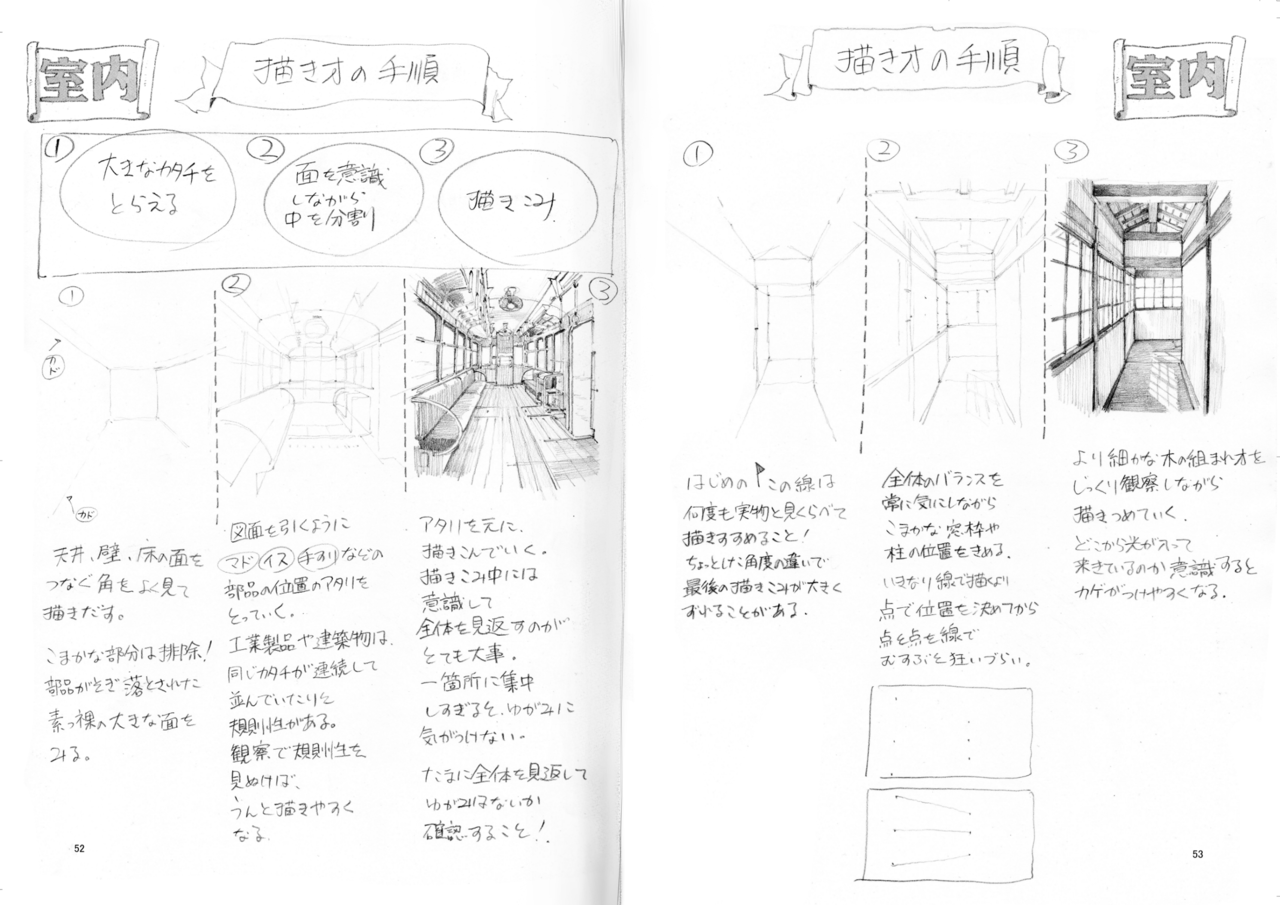 室内
描き方の手順
①
大きなカタチを
とらえる
②
面を意識
しながら
中を分割
③
描きこみ
①
カド
カド
天井、壁、床の面を
つなぐ角をよく見て
描きだす。
こまかな部分は排除!
部品がそぎ落とされた
素っ裸の大きな面を
みる。
②
図面を引くように
マド イス 手すり などの
部品の位置のアタリを
とっていく。
工業製品や建築物は、
同じカタチが連続して
並んでいたりと
規則性がある。
観察で規則性を
見ぬけば、
うんと描きやすく
なる
③
アタリを元に、
描きこんでいく。
描きこみ中には
意識して
全体を見返すのが
とても大事。
一箇所に集中
しすぎると、ゆがみに
気がつけない。
たまに全体を見返して
ゆがみはないか
確認すること!
52
描き方の手順
室内
①
はじめの この線は
何度も実物と見くらべて
描きすすめること!
ちょっとした角度の違いで
最後の描きこみが大きく
ずれることがある.
②
全体のバランスを
常に気にしながら
こまかな窓枠や
柱の位置をきめる.
いきなり線で描くより
点で位置を決めてから
点と点を線で
むすぶと狂いづらい。
③
より細かな木の組まれ方を
じっくり観察しながら
描きつめていく.
どこから光が入って
来きているのか意識すると
カゲがつけやすくなる.
53